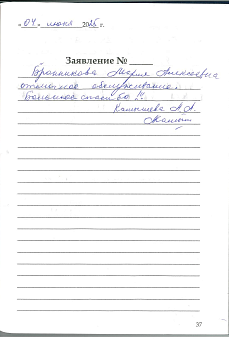 «04» июня 2025 г.
Заявление №
Бронникова Мария Алексеевна
отличное обслуживание.
Большое спасибо!!!
А.А.
37